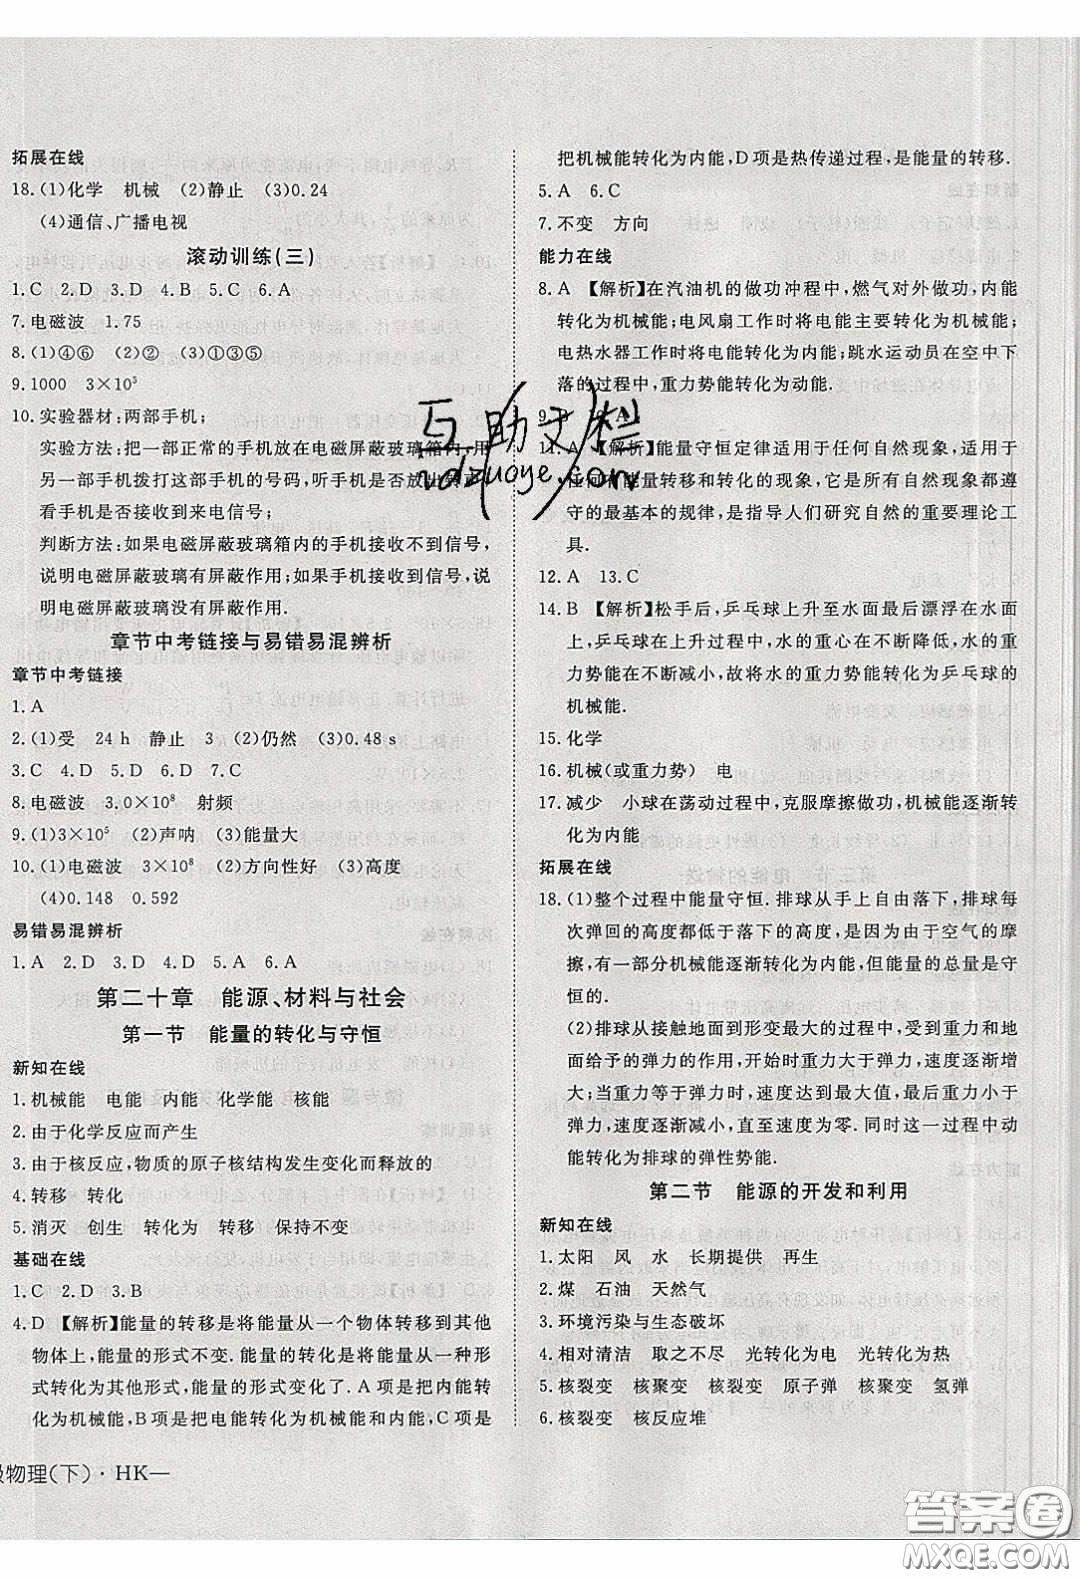 拓展在线
18.(1)化学 机械 (2)静止 (3)0.24
(4)通信、广播电视
滚动训练(三)
1.C 2.D 3.D 4.B 5.C 6.A
7.电磁波 1.75
8.(1)④⑥ (2)② (3)①③⑤
9.1000 3×10⁵
10.实验器材:两部手机;
实验方法:把一部正常的手机放在电磁屏蔽玻璃箱内,用
另一部手机拨打这部手机的号码,听手机是否放出铃声
看手机是否接收到来电信号;
判断方法:如果电磁屏蔽玻璃箱内的手机接收不到信号,
说明电磁屏蔽玻璃有屏蔽作用;如果手机接收到信号,说
明电磁屏蔽玻璃没有屏蔽作用.
章节中考链接与易错易混辨析
章节中考链接
1.A
2.(1)受 24 h 静止 3 (2)仍然 (3)0.48 s
3.C 4.D 5.D 6.D 7.C
8.电磁波 3.0×10⁸ 射频
9.(1)3×10⁵ (2)声呐 (3)能量大
10.(1)电磁波 3×10⁸ (2)方向性好 (3)高度
(4)0.148 0.592
易错易混辨析
1.A 2.D 3.D 4.D 5.A 6.A
第二十章 能源、材料与社会
第一节 能量的转化与守恒
新知在线
1.机械能 电能 内能 化学能 核能
2.由于化学反应而产生
3.由于核反应,物质的原子核结构发生变化而释放的
4.转移 转化
5.消灭 创生 转化为 转移 保持不变
基础在线
1.C 2.D 3.B
4.D 【解析】能量的转移是将能量从一个物体转移到其他
物体上,能量的形式不变.能量的转化是将能量从一种形
式转化为其他形式,能量的形式变化了.A项是把内能转
化为机械能,B项是把电能转化为机械能和内能,C项是
级物理(下)·HK—
把机械能转化为内能,D项是热传递过程,是能量的转移.
5.A 6.C
7.不变 方向
能力在线
8.A 【解析】在汽油机的做功冲程中,燃气对外做功,内能
转化为机械能;电风扇工作时将电能主要转化为机械能;
电热水器工作时将电能转化为内能;跳水运动员在空中下
落的过程中,重力势能转化为动能.
9.B 10.A
11.A 【解析】能量守恒定律适用于任何自然现象,适用于
任何有能量转移和转化的现象,它是自然界中都遵
守的最基本的规律,是指导人们研究自然的重要理论工
具.
12.A 13.C
14.B 【解析】松手后,乒乓球上升至水面最后漂浮在水面
时,乒乓球在上升过程中,水的重心在不断降低,水的重
力势能在不断减小,故将水的重力势能转化为乒乓球的
机械能.
15.化学
16.机械(或重力势) 电
17.减少 小球在荡动过程中,克服摩擦做功,机械能逐渐转
化为内能
拓展在线
18.(1)整个过程中能量守恒.排球从手上自由落下,排球
每次弹回的高度都低于落下的高度,是因为由于空气的摩
擦,有一部分机械能逐渐转化为内能,但能量的总量是守
恒的.
(2)排球从接触地面到形变最大的过程中,受到重力和
地面给予的弹力的作用,开始时重力大于弹力,速度逐渐增
大;当重力等于弹力时,速度达到最大值,最后重力小于
弹力,速度逐渐减小,直至速度为零.同时这一过程中动
能转化为排球的弹性势能.
第二节 能源的开发和利用
新知在线
1.太阳 风 水 长期提供 再生
2.煤 石油 天然气
3.环境污染与生态破坏
4.相对清洁 取之不尽 光转化为电 光转化为热
5.核裂变 核聚变 核裂变 原子弹 核聚变 氢弹
6.核裂变 核反应堆
互助文栏
hdzuoye.com
答案圈
MXQE.COM